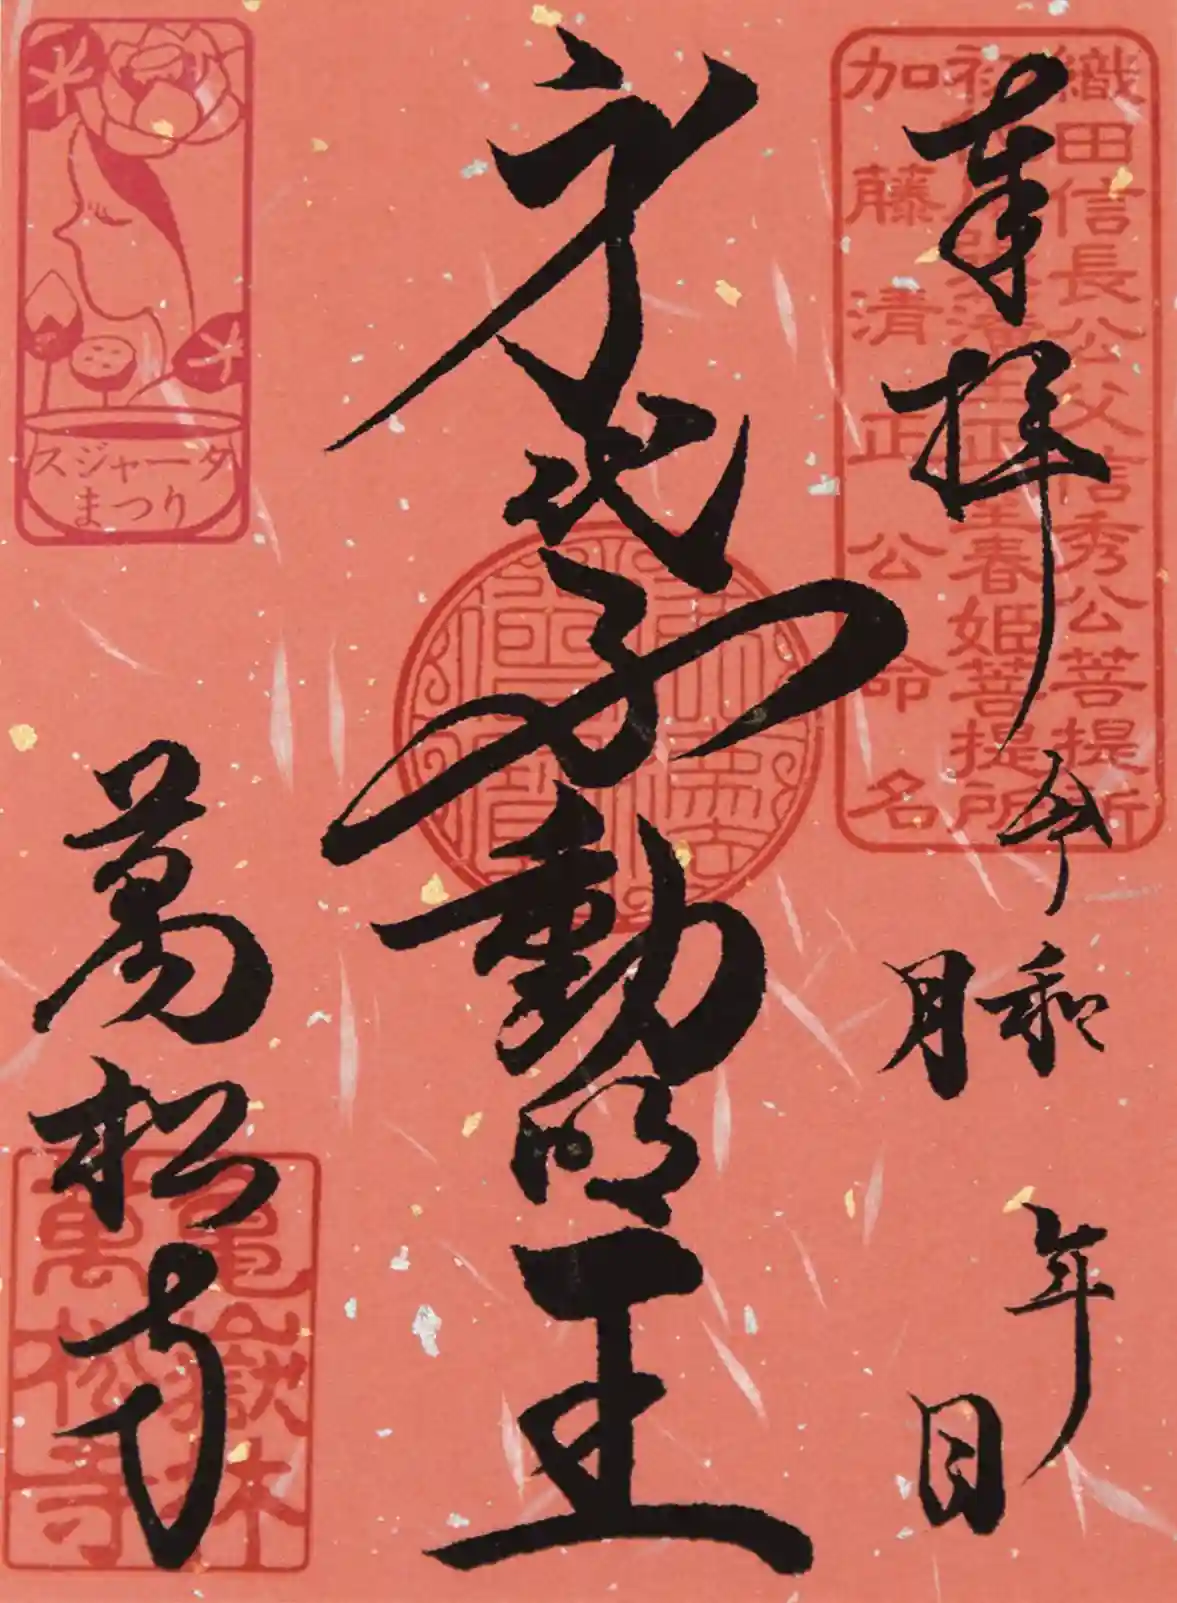 奉拝
令和 年
月 日
織田信長公父信秀公菩提所
初代尾張藩主正室春姫菩提所
加藤清正公命名
身代不動明王
スジャータ
まつり
萬松寺
亀嶽林
萬松寺